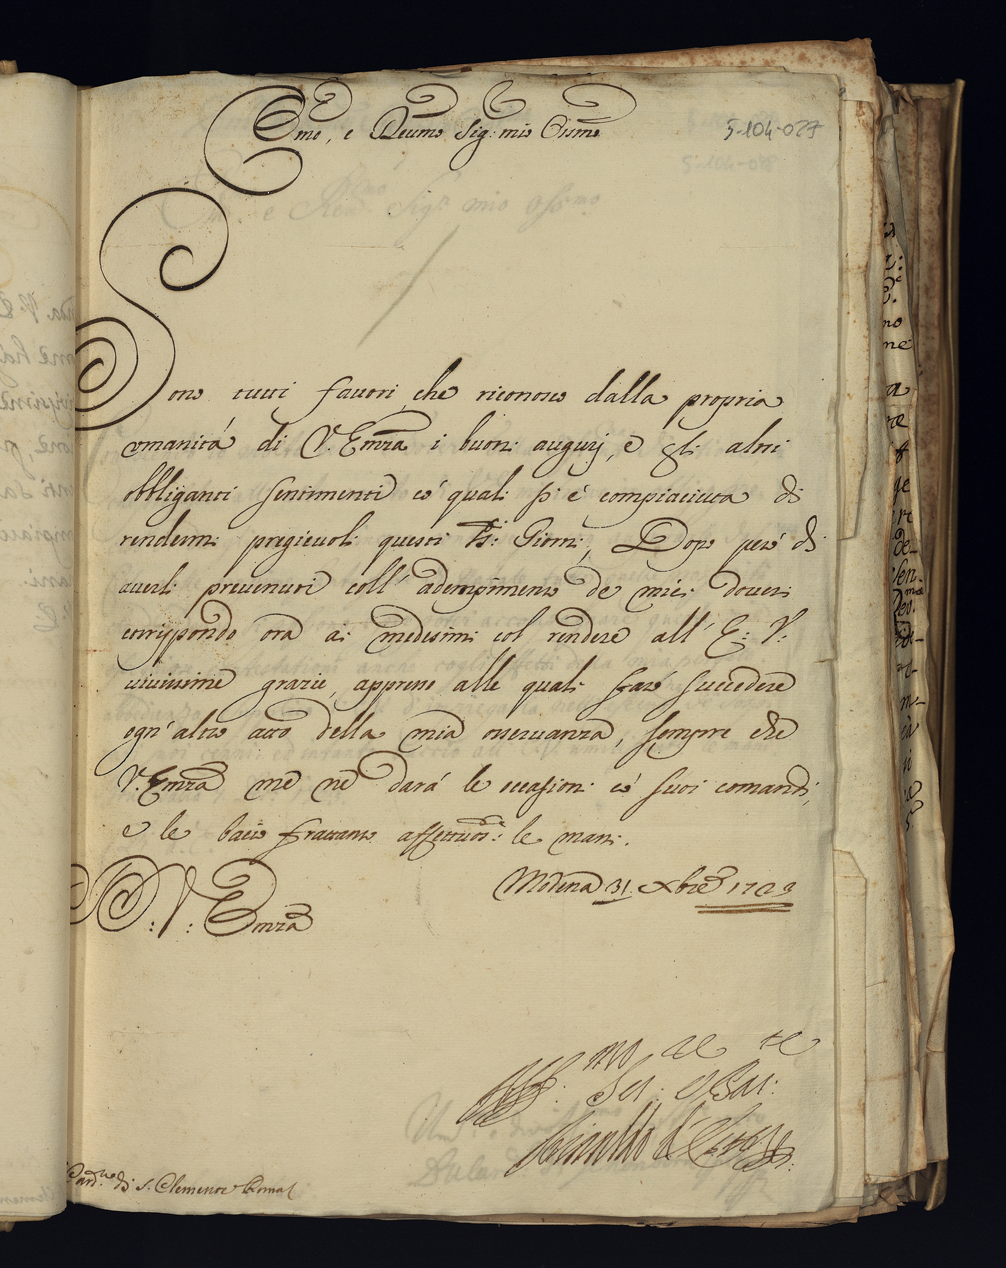 Emo, e Reumo Sig: mio Ossmo
5-104-027
Sono tutti favori, che riconosco dalla propria
umanità di V. Emza i buoni augurj, e gli altri
obbliganti sentimenti co' quali si è compiaciuta di
rendermi pregievoli questi Sti: Giorni; Dopo però di
averli prevenuti coll' adempimento de miei doveri
corrispondo ora ai medesimi col rendere all' E: V:
vivissime grazie, appreso alle quali farò succedere
ogn' altro atto della mia osservanza, sempre che
V. Emza me ne darà le occasioni co' suoi comandi,
e le bacio frattanto affettuoste: le mani.
Modena 31 Xbre 1729
D: V: Emza
Aff: mo Ser: re Obl: te
Rinaldo d'Este
Card.le di S. Clemente Roma